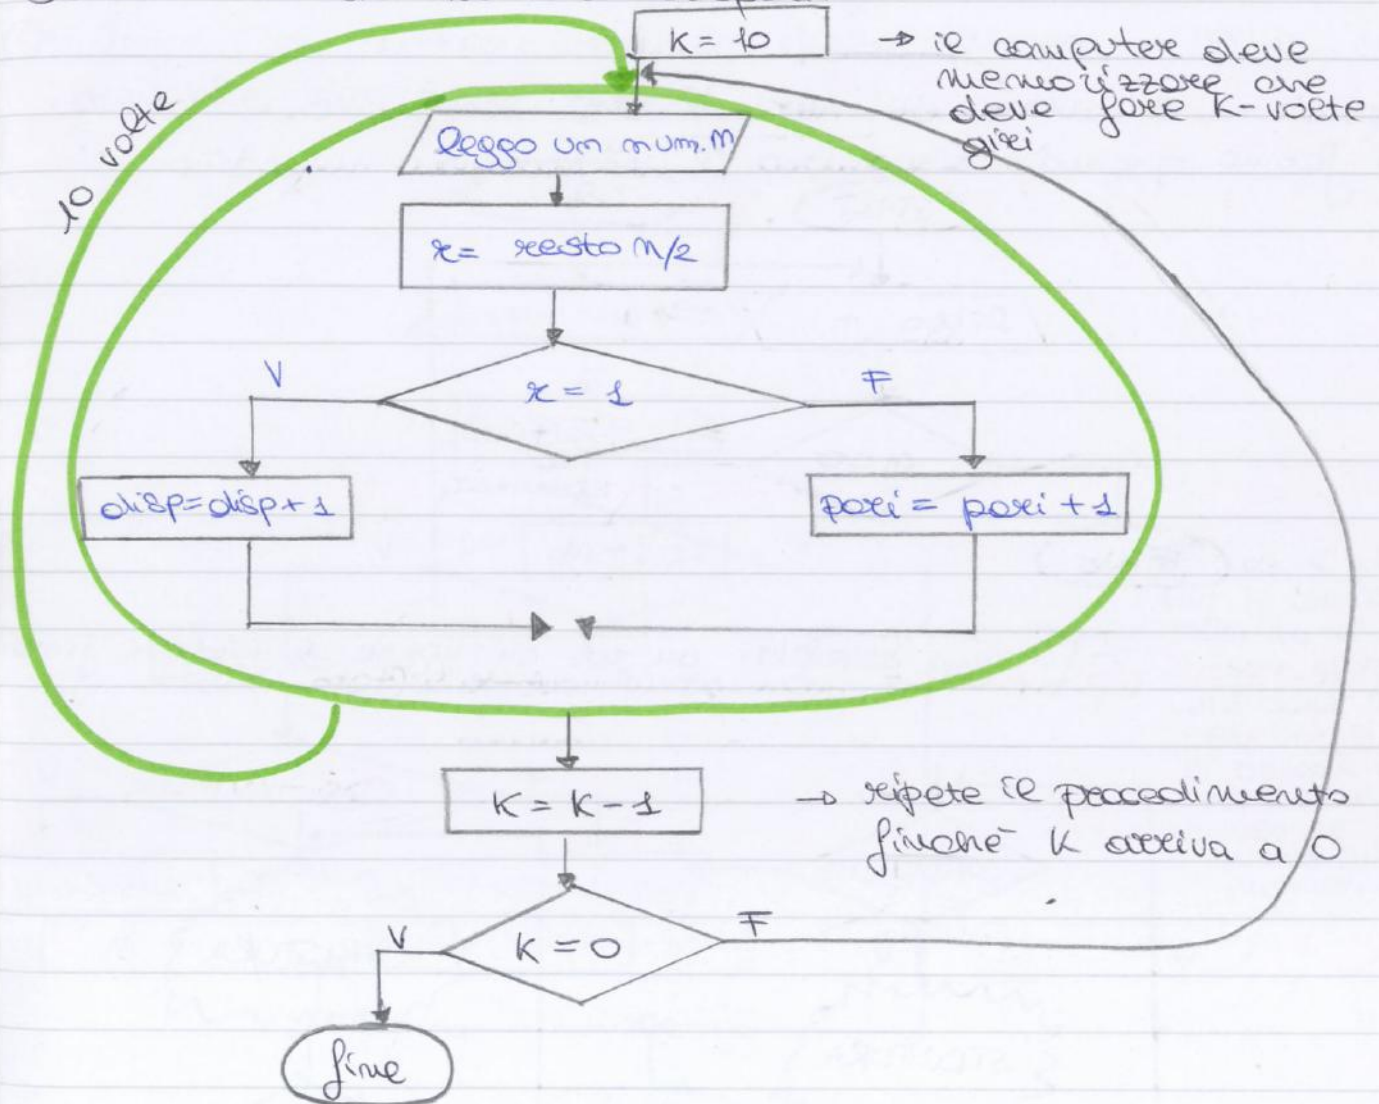 K = 10
→ il computer deve
memorizzare che
deve fare K-volte
giri
10 volte
leggo un num. n
r = resto n/2
r = 1
V
F
disp = disp + 1
pari = pari + 1
K = K - 1
→ ripete il procedimento
finchè K arriva a 0
K = 0
V
F
fine